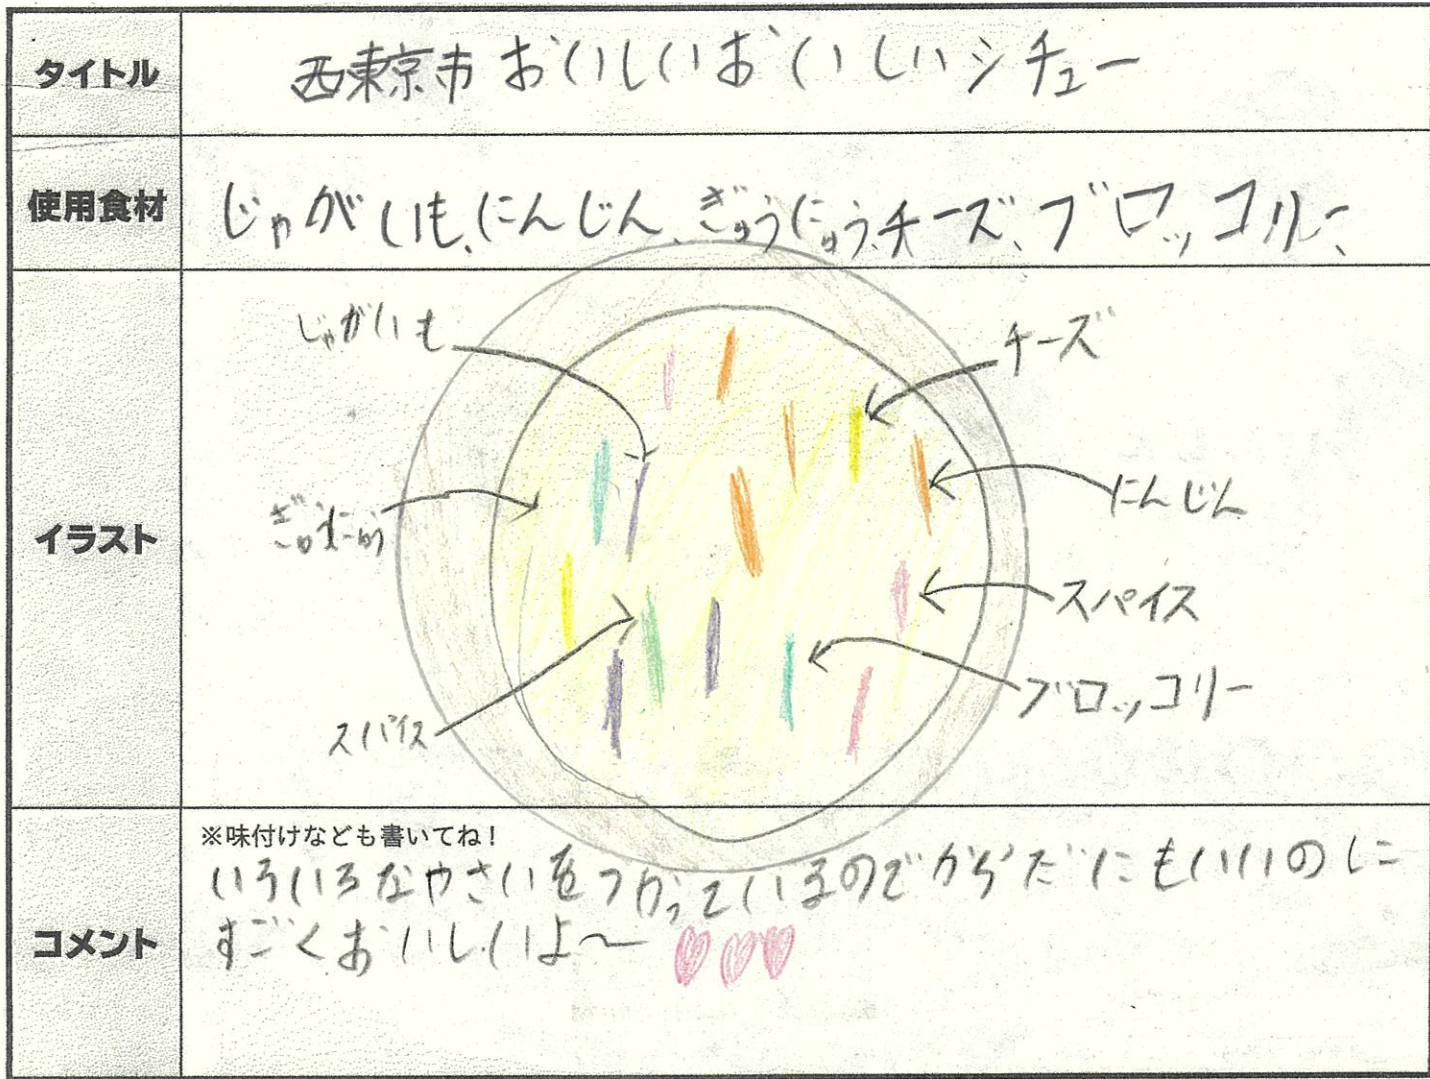 タイトル
西東京市おいしいおいしいシチュー
使用食材
じゃがいも、にんじん、ぎゅうにゅう、チーズ、ブロッコリー、
イラスト
じゃがいも
チーズ
ぎゅうにゅう
にんじん
スパイス
ブロッコリー
スパイス
コメント
※味付けなども書いてね！
いろいろなやさいをつかっているのでからだにもいいのに
すごくおいしいよ〜